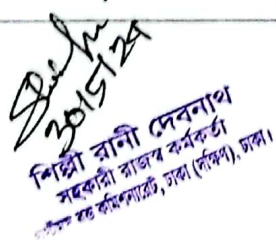 30/5/24
শিল্পী রানী দেবনাথ
সহকারী রাজস্ব কর্মকর্তা
বন্ড কমিশনারেট, ঢাকা (দক্ষিণ), ঢাকা।